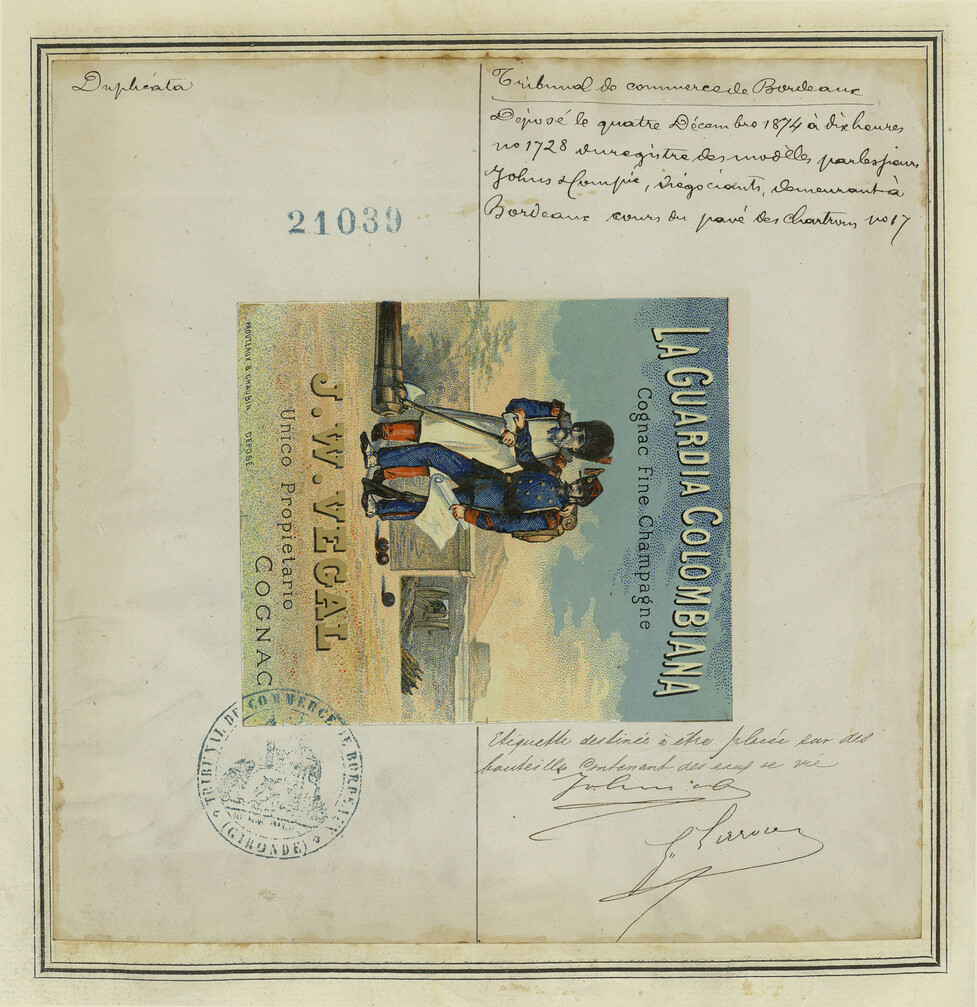 Duplicata
Tribunal de commerce de Bordeaux
Déposé le quatre Décembre 1874 à dix heures
no 1728 du registre des modèles par les sieurs
Johns & Compie, négociants, demeurant à
Bordeaux cours du pavé des Chartrons no 17
21039
LA GUARDIA COLOMBIANA
Cognac Fine Champagne
J. W. VEGAL
Unico Propietario
COGNAC
PROUTEAUX & CHAUBIN. DÉPOSÉ.
Etiquette destinée à être placée sur des
bouteilles contenant des eaux de vie
TRIBUNAL DE COMMERCE DE BORDEAUX
(GIRONDE)